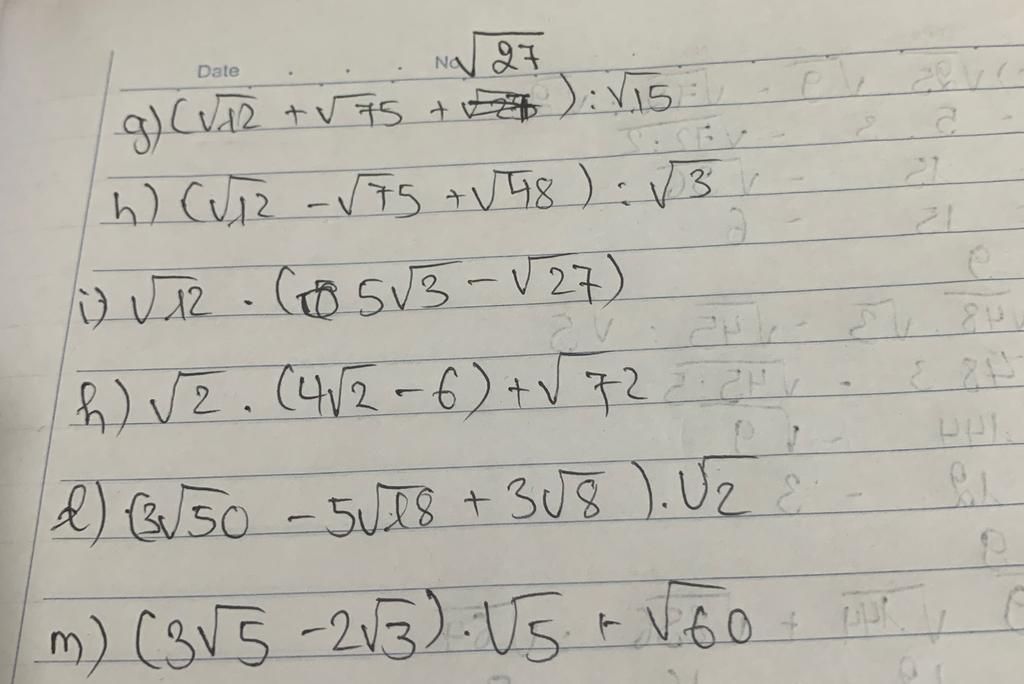 Date
No √27
g) (√12 + √75 + ) : √15
h) (√12 - √75 + √48) : √3
i) √12 . ( 5√3 - √27)
h) √2 . (4√2 - 6) + √72
l) (3√50 - 5√18 + 3√8) . √2
m) (3√5 - 2√3) . √5 + √60